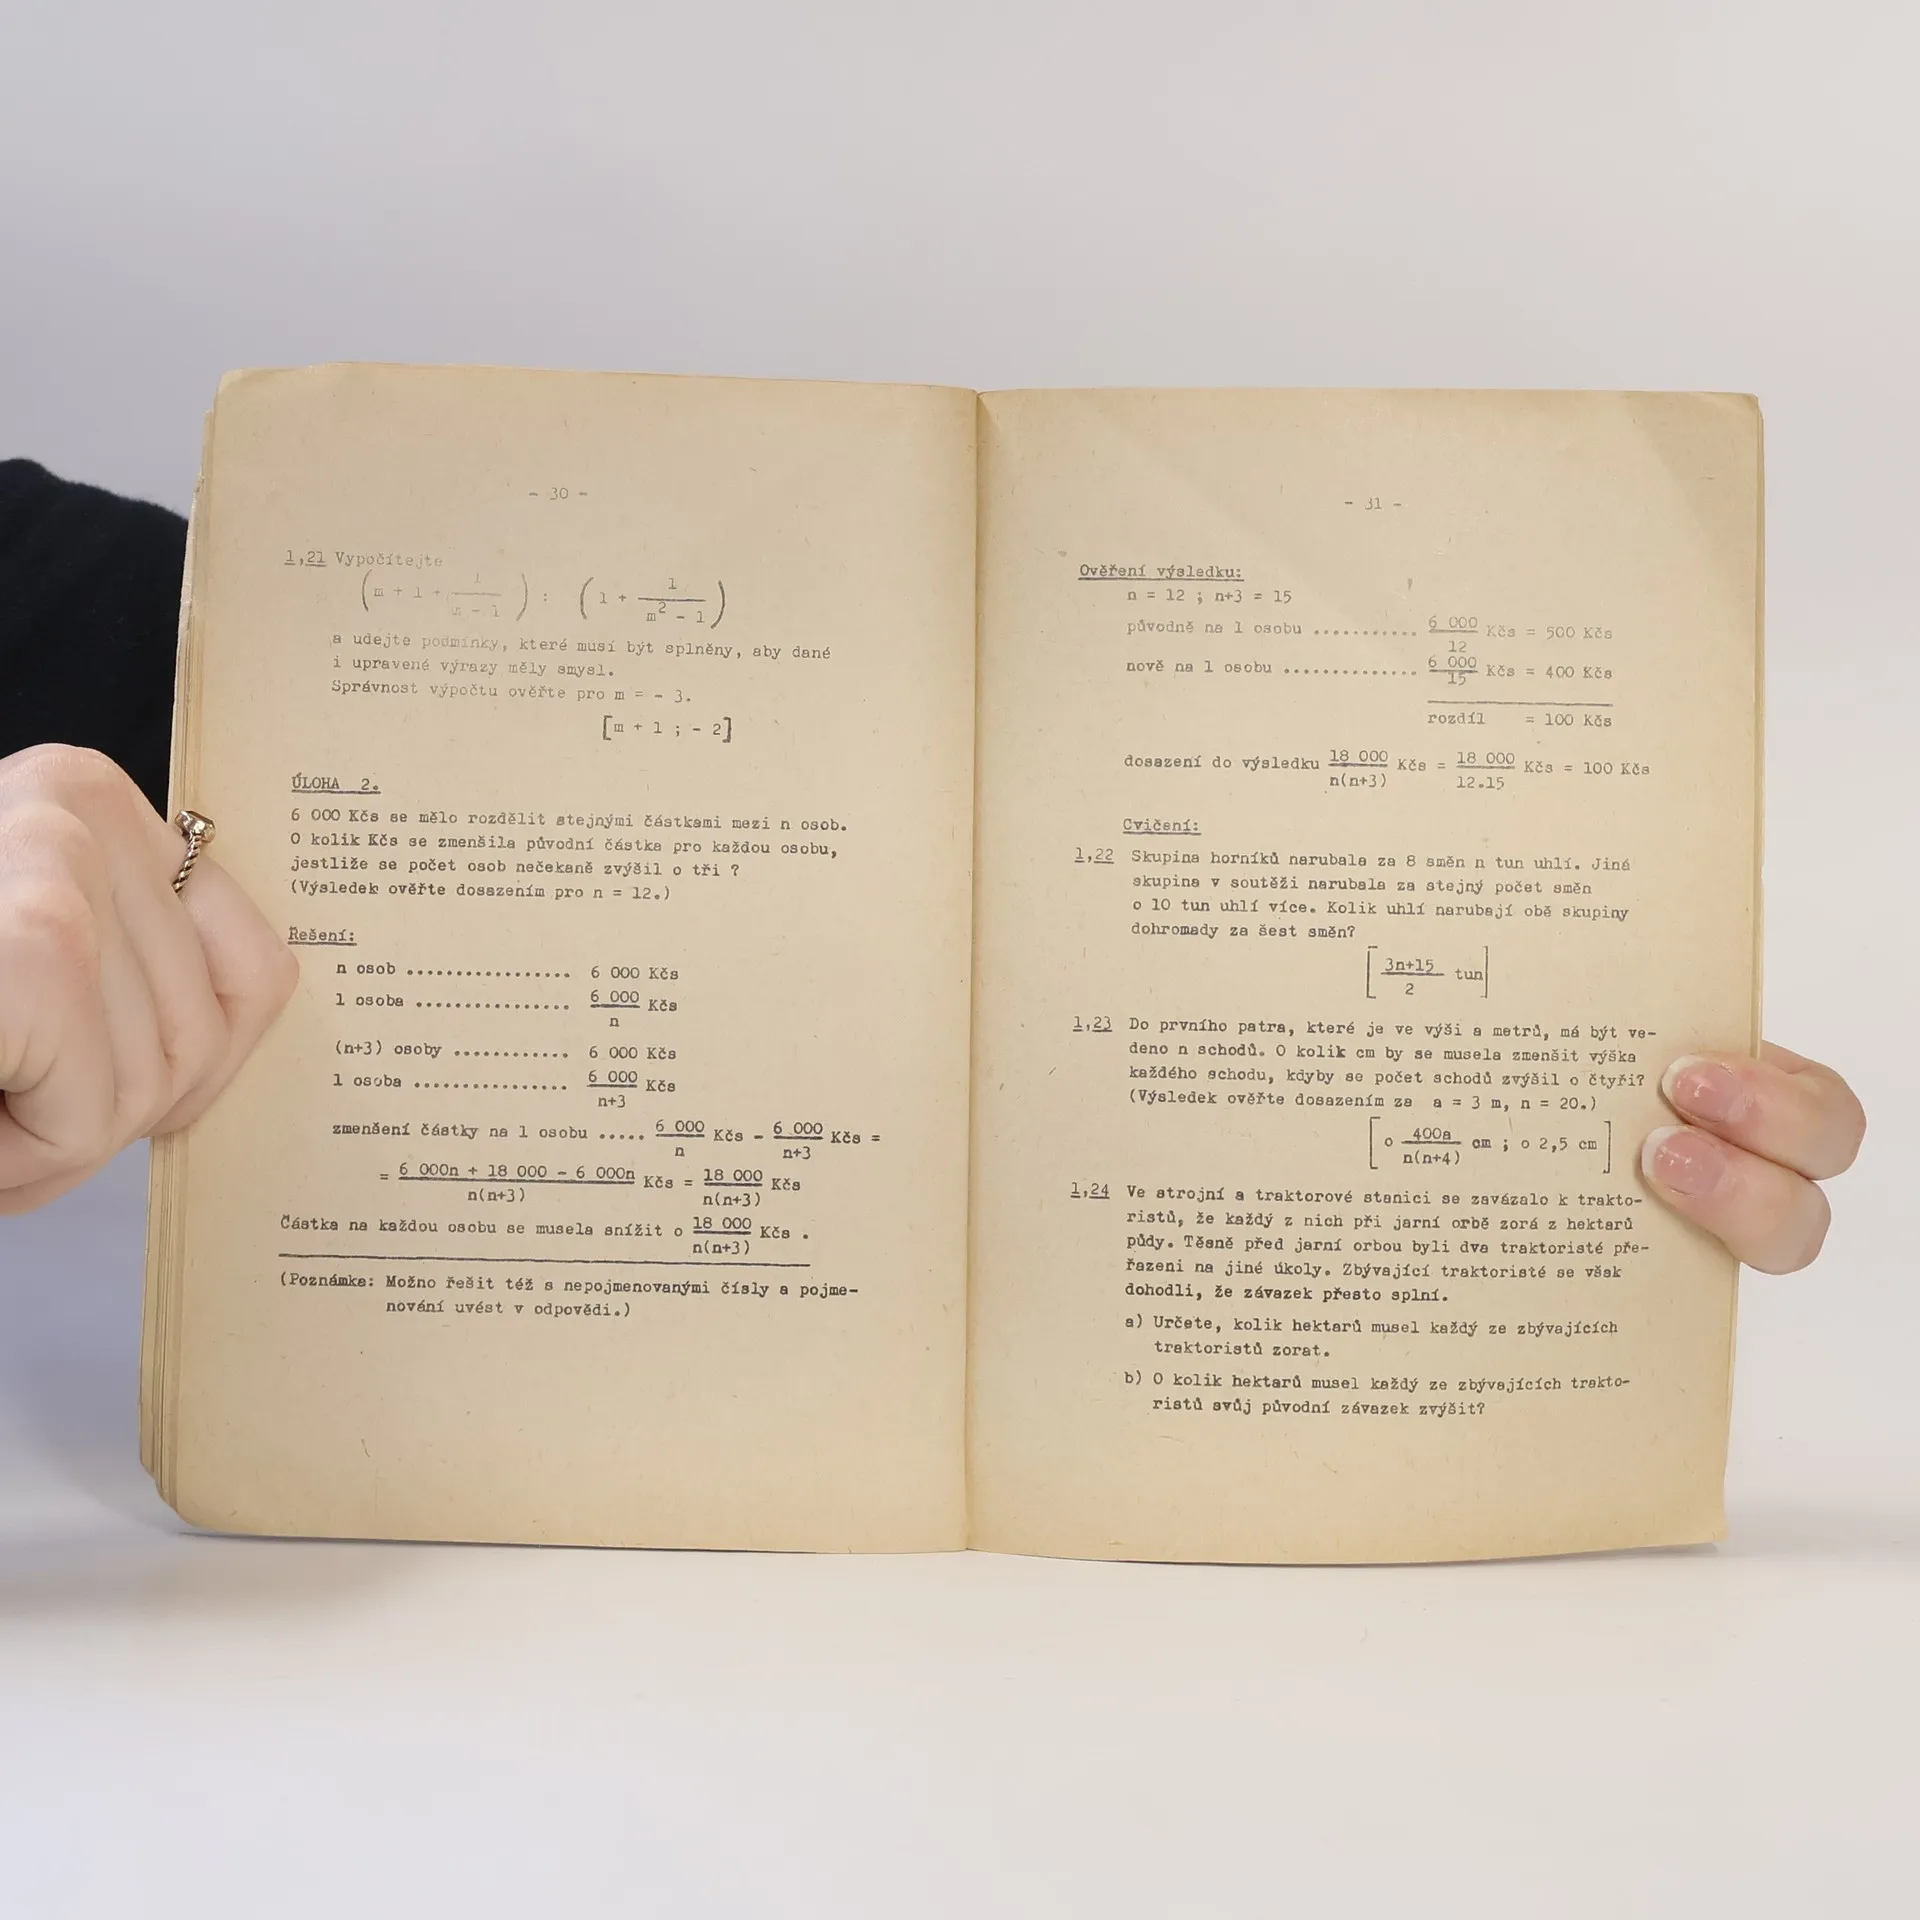 - 30 -
1,21 Vypočítejte
( m + 1 + 1/(m - 1) ) : ( 1 + 1/(m² - 1) )
a udejte podmínky, které musí být splněny, aby dané
i upravené výrazy měly smysl.
Správnost výpočtu ověřte pro m = - 3.
[m + 1 ; - 2]
ÚLOHA 2.
6 000 Kčs se mělo rozdělit stejnými částkami mezi n osob.
O kolik Kčs se zmenšila původní částka pro každou osobu,
jestliže se počet osob nečekaně zvýšil o tři ?
(Výsledek ověřte dosazením pro n = 12.)
Řešení:
n osob ................. 6 000 Kčs
1 osoba ................ 6 000/n Kčs
(n+3) osoby ............ 6 000 Kčs
1 osoba ................ 6 000/(n+3) Kčs
zmenšení částky na 1 osobu ..... 6 000/n Kčs - 6 000/(n+3) Kčs =
= (6 000n + 18 000 - 6 000n)/(n(n+3)) Kčs = 18 000/(n(n+3)) Kčs
Částka na každou osobu se musela snížit o 18 000/(n(n+3)) Kčs .
(Poznámka: Možno řešit též s nepojmenovanými čísly a pojme-
nování uvést v odpovědi.)
- 31 -
Ověření výsledku:
n = 12 ; n+3 = 15
původně na 1 osobu ........... 6 000/12 Kčs = 500 Kčs
nově na 1 osobu .............. 6 000/15 Kčs = 400 Kčs
rozdíl = 100 Kčs
dosazení do výsledku 18 000/(n(n+3)) Kčs = 18 000/(12.15) Kčs = 100 Kčs
Cvičení:
1,22 Skupina horníků narubala za 8 směn n tun uhlí. Jiná
skupina v soutěži narubala za stejný počet směn
o 10 tun uhlí více. Kolik uhlí narubají obě skupiny
dohromady za šest směn?
[ (3n+15)/2 tun ]
1,23 Do prvního patra, které je ve výši a metrů, má být ve-
deno n schodů. O kolik cm by se musela zmenšit výška
každého schodu, kdyby se počet schodů zvýšil o čtyři?
(Výsledek ověřte dosazením za a = 3 m, n = 20.)
[ o 400a/(n(n+4)) cm ; o 2,5 cm ]
1,24 Ve strojní a traktorové stanici se zavázalo k trakto-
ristů, že každý z nich při jarní orbě zorá z hektarů
půdy. Těsně před jarní orbou byli dva traktoristé pře-
řazeni na jiné úkoly. Zbývající traktoristé se však
dohodli, že závazek přesto splní.
a) Určete, kolik hektarů musel každý ze zbývajících
traktoristů zorat.
b) O kolik hektarů musel každý ze zbývajících trakto-
ristů svůj původní závazek zvýšit?